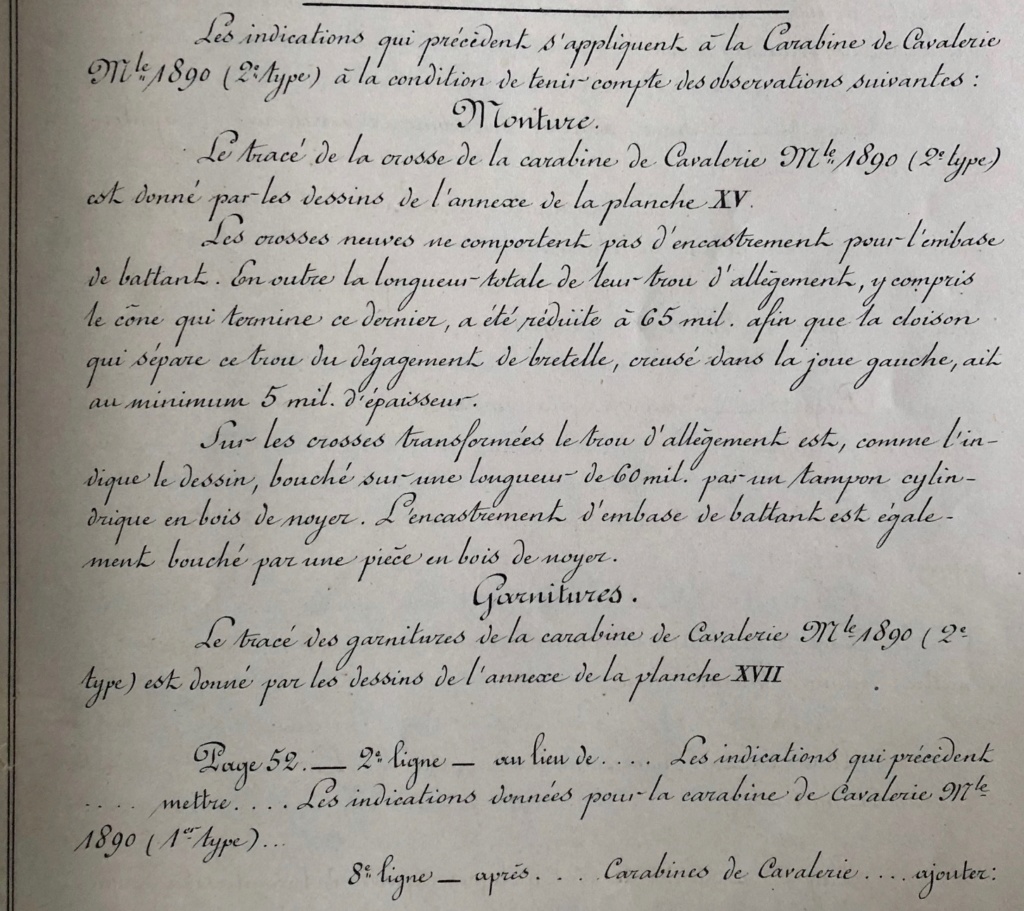 Les indications qui précèdent s'appliquent à la Carabine de Cavalerie
Mle 1890 (2e type) à la condition de tenir compte des observations suivantes :
Monture.
Le tracé de la crosse de la carabine de Cavalerie Mle 1890 (2e type)
est donné par les dessins de l'annexe de la planche XV.
Les crosses neuves ne comportent pas d'encastrement pour l'embase
de battant. En outre la longueur totale de leur trou d'allègement, y compris
le cône qui termine ce dernier, a été réduite à 65 mil. afin que la cloison
qui sépare ce trou du dégagement de bretelle, creusé dans la joue gauche, ait
au minimum 5 mil. d'épaisseur.
Sur les crosses transformées le trou d'allègement est, comme l'in-
dique le dessin, bouché sur une longueur de 60 mil. par un tampon cylin-
drique en bois de noyer. L'encastrement d'embase de battant est égale-
ment bouché par une pièce en bois de noyer.
Garnitures.
Le tracé des garnitures de la carabine de Cavalerie Mle 1890 (2e
type) est donné par les dessins de l'annexe de la planche XVII
Page 52. — 2e ligne — au lieu de.... Les indications qui précèdent
.... mettre.... Les indications données pour la carabine de Cavalerie Mle
1890 (1er type)...
8e ligne — après... Carabines de Cavalerie.... ajouter: